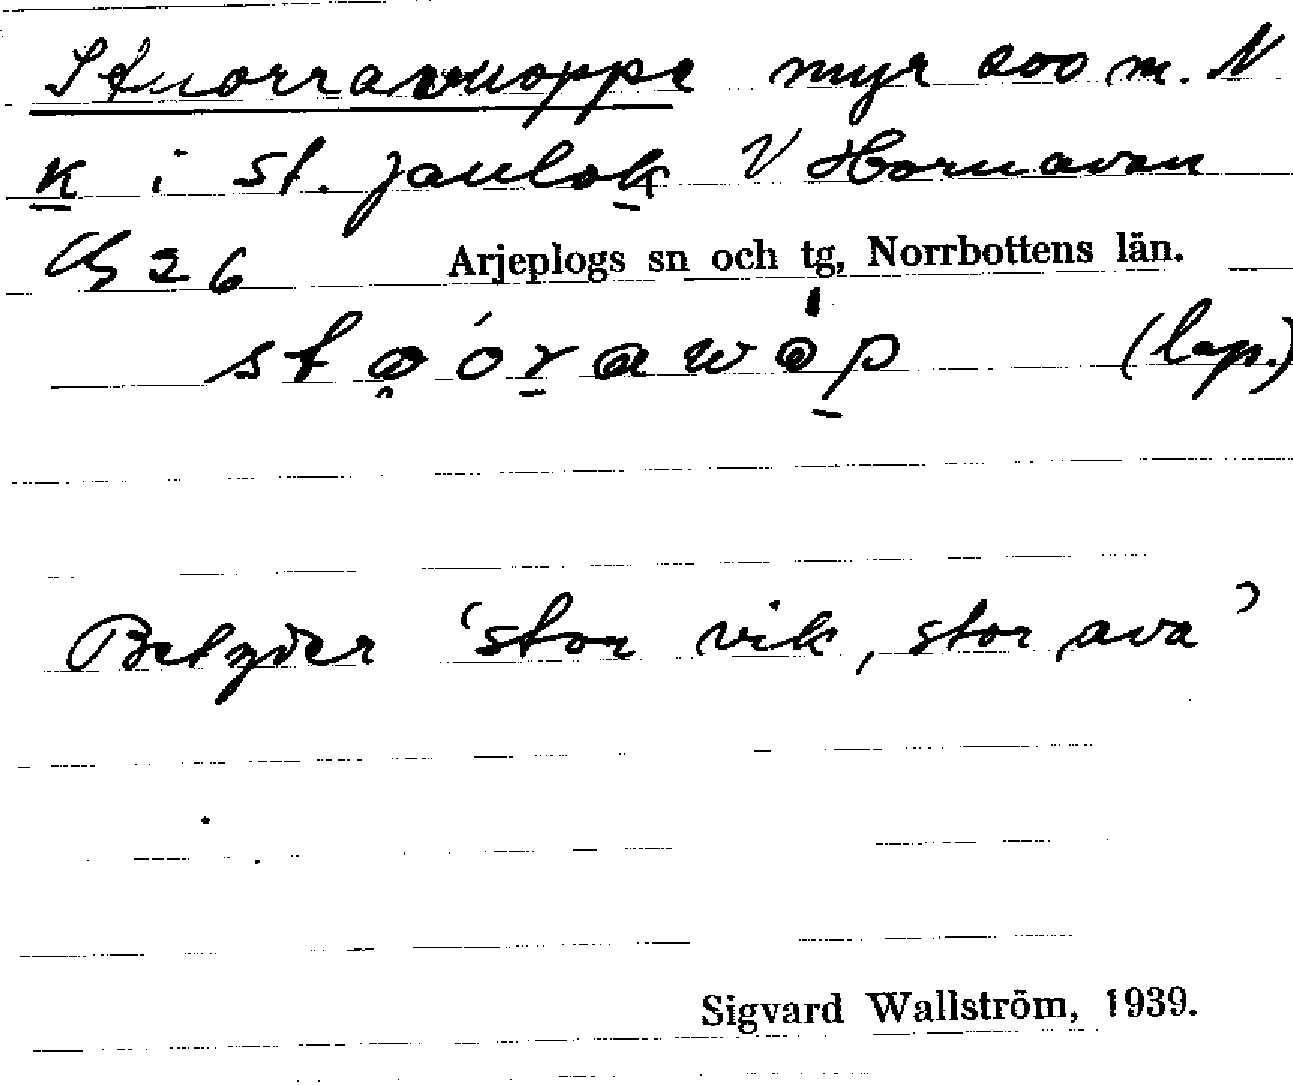 Stuorravuoppe myr 200 m. N
k i St. Jaulok V Hornavan
26 Arjeplogs sn och tg, Norrbottens län.
(lap.)
Betyder 'stor vik, stor ava'
Sigvard Wallström, 1939.